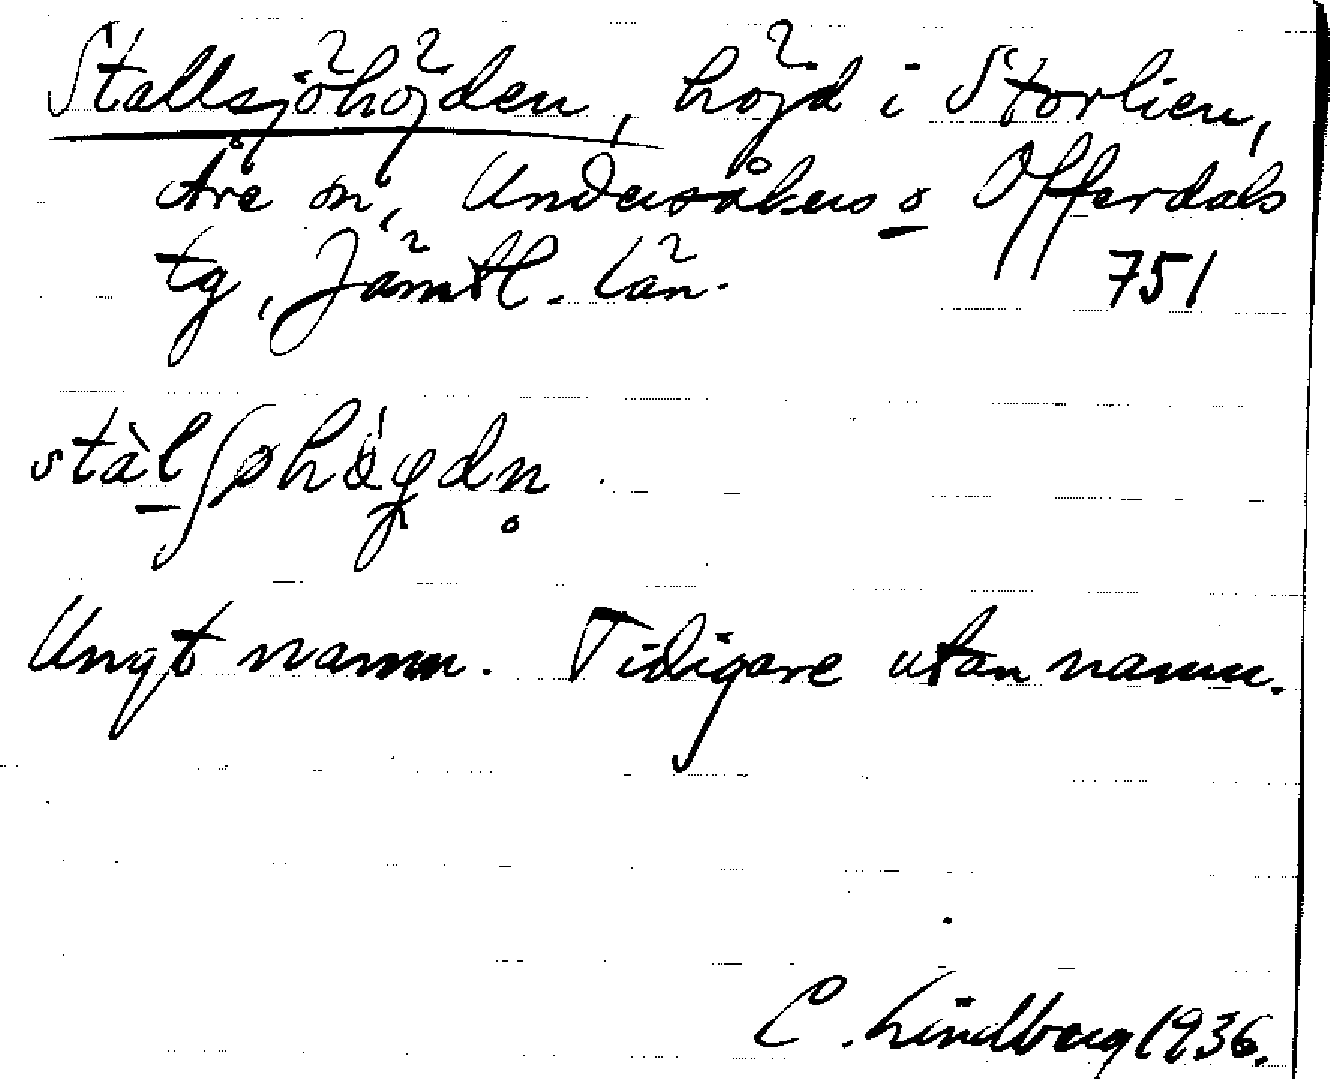 Stallsjöhöjden, höjd i Storlien,
Åre sn, Undersåkers o Offerdals
tg, Jämtl. län.
751
stàl̠ʃøhø̀gdn̥
Ungt namn. Tidigare utan namn.
C. Lindberg 1936.